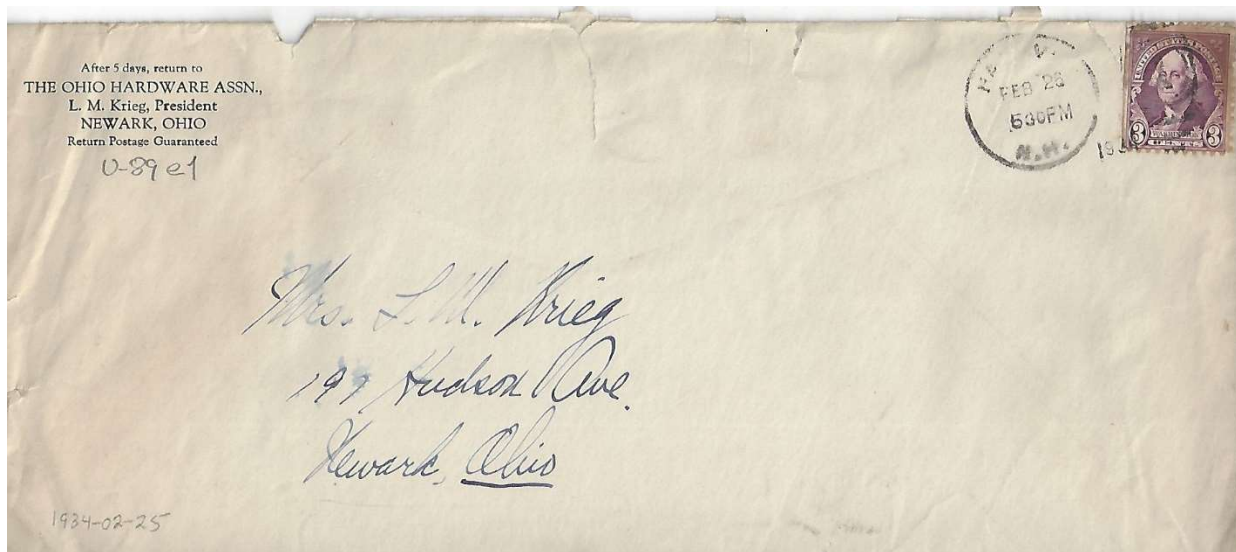 After 5 days, return to
THE OHIO HARDWARE ASSN.,
L. M. Krieg, President
NEWARK, OHIO
Return Postage Guaranteed
U-89e1
FEB 26
530PM
N.H.
UNITED STATES POSTAGE
3 WASHINGTON 3
Mrs. L. M. Krieg
199 Hudson Ave.
Newark, Ohio
1934-02-25